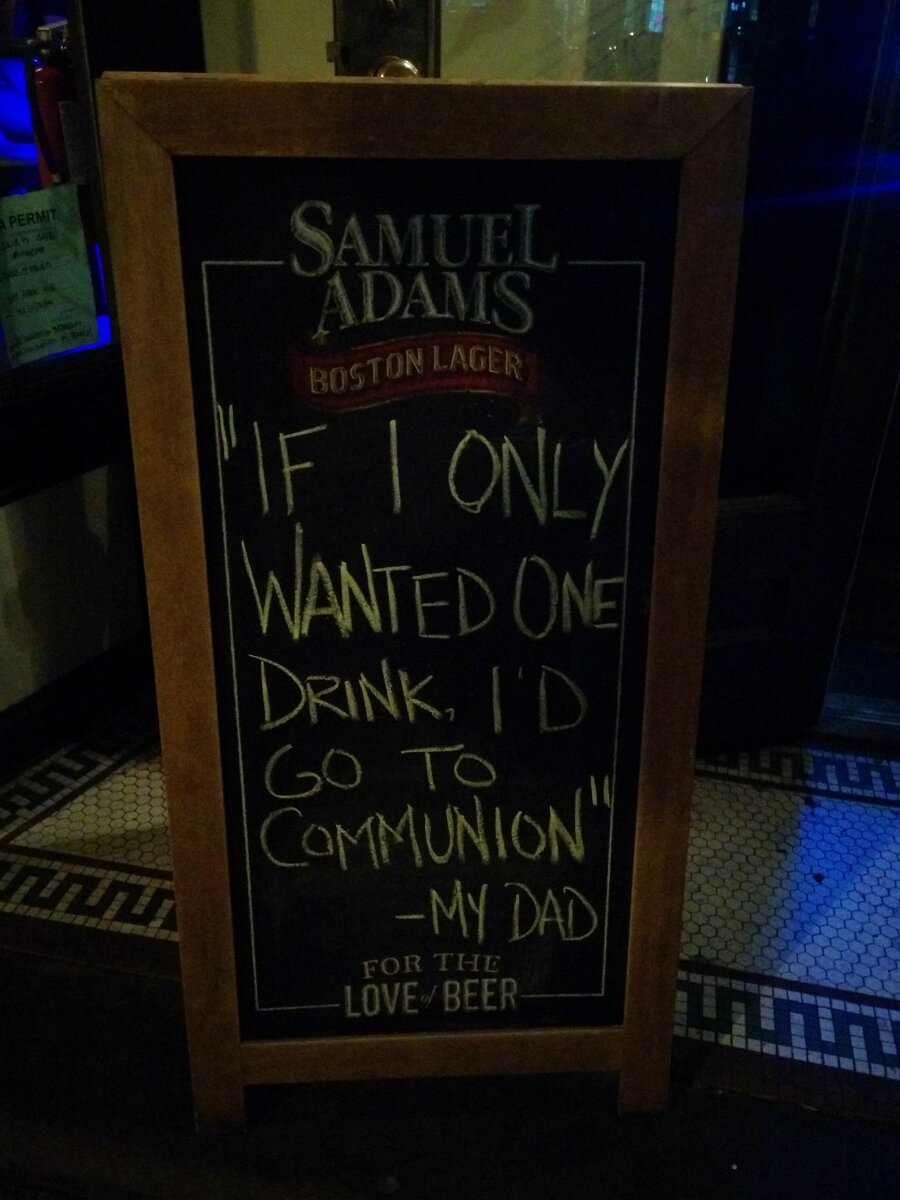 SAMUEL
ADAMS
BOSTON LAGER
"IF I ONLY
WANTED ONE
DRINK, I'D
GO TO
COMMUNION"
-MY DAD
FOR THE
LOVE of BEER
PERMIT